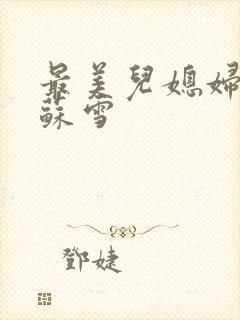 最美兒媳婦
蘇雪
鄧婕